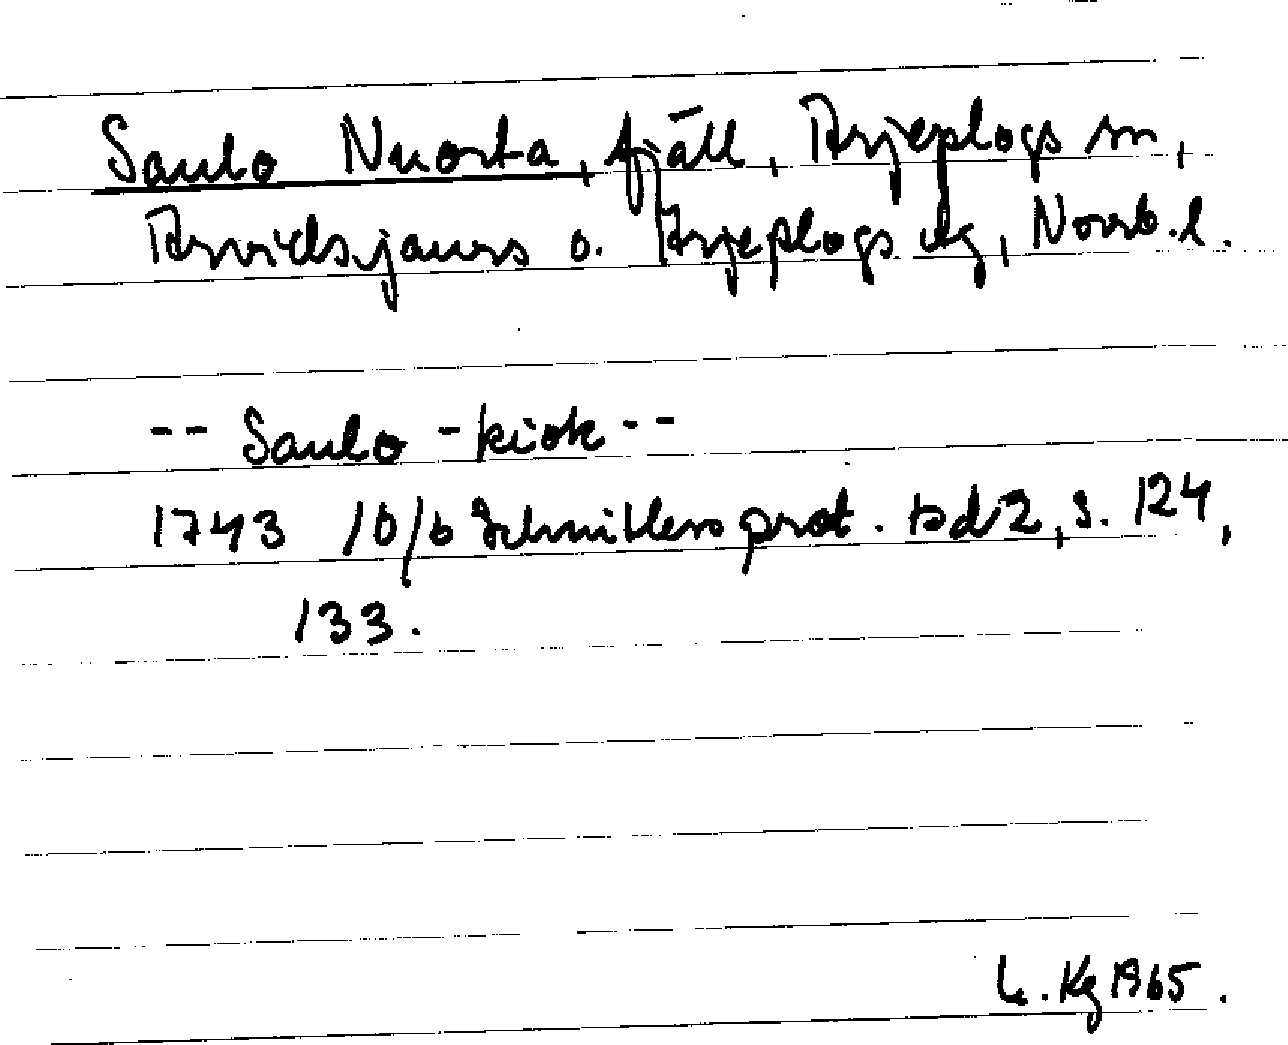 Saulo Nuorta, fjäll, Arjeplogs sn,
Arvidsjaurs o. Arjeplogs tlg, Norrb. l.
-- Saulo - kiok --
1743 10/6 Schnitlers prot. bd 2, s. 124,
133.
L. Kg 1965.